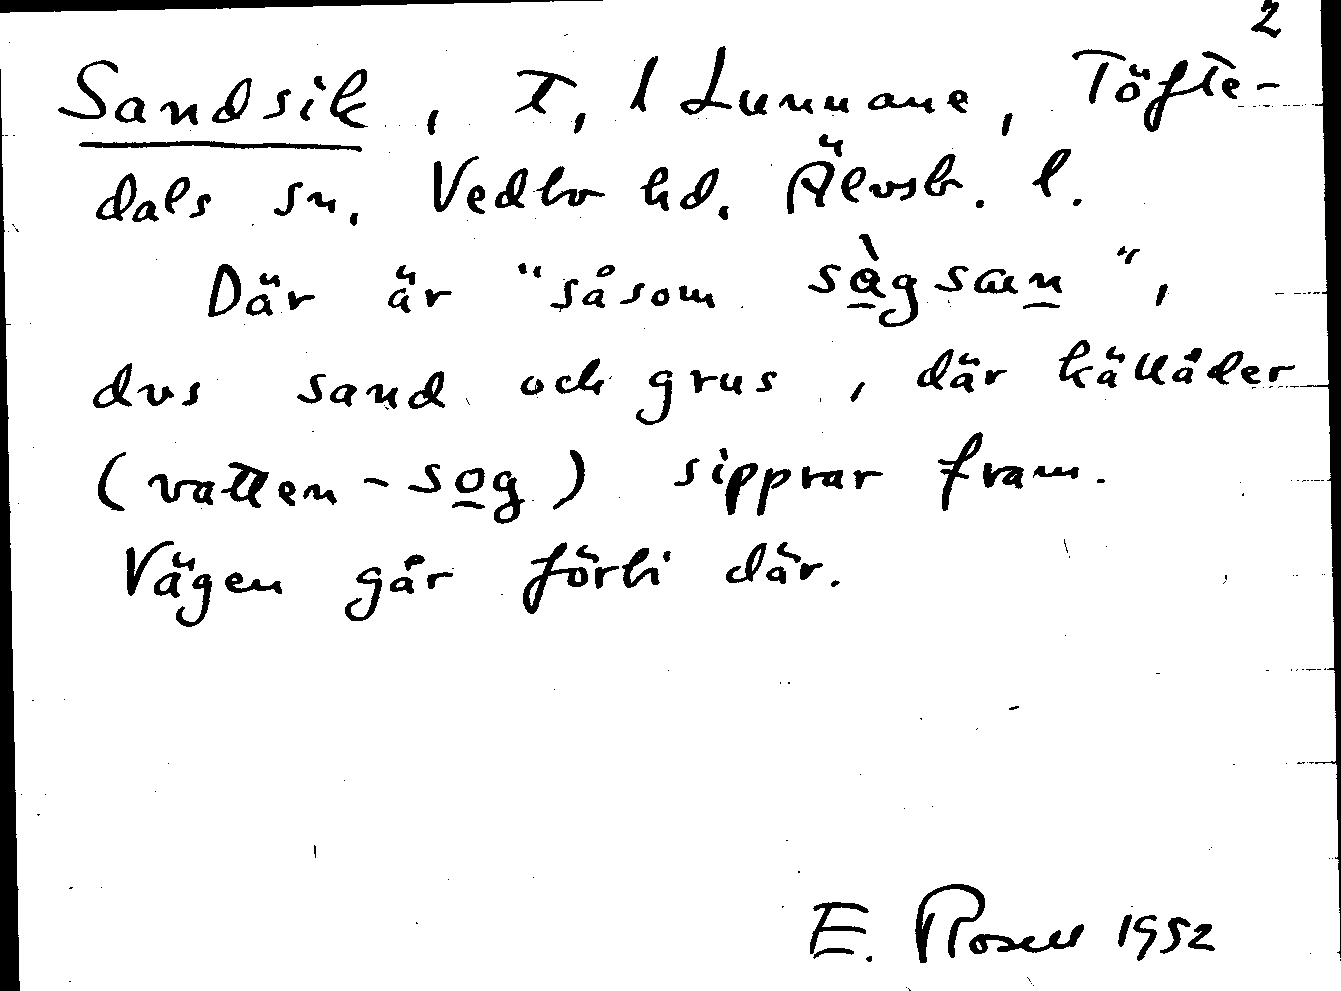 2
Sandsik, T, l Lunnane, Töfte-
dals sn. Vedbo hd. Älvsb. l.
Där är "såsom sàgsan",
dvs sand och grus, där källåder
(vatten-sog) sipprar fram.
Vägen går förbi där.
E. Rosell 1952